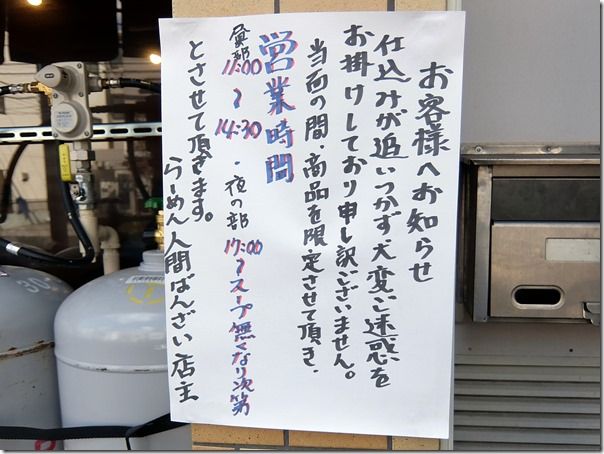 お客様へお知らせ
仕込みが追いつかず大変ご迷惑を
お掛けしており申し訳ございません。
当面の間、商品を限定させて頂き、
営業時間
昼部11:00〜14:30・夜の部17:00〜スープ無くなり次第
とさせて頂きます。
らーめん人間ばんざい店主
30